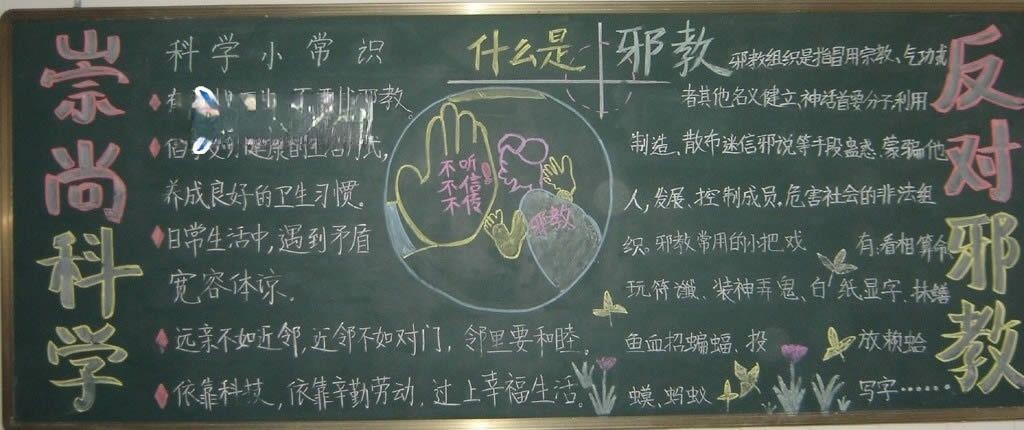 崇尚科学
科学小常识
养成良好的卫生习惯。
日常生活中,遇到矛盾
宽容体谅.
远亲不如近邻,近邻不如对门,邻里要和睦。
依靠科技,依靠辛勤劳动,过上幸福生活。
不听
不信
不传
邪教
什么是邪教
邪教组织是指冒用宗教、气功或
者其他名义健立、神话首要分子利用
制造、散布迷信邪说等手段蛊惑、蒙骗他
人,发展、控制成员.危害社会的非法组
织。邪教常用的小把戏 有:看相算命
玩符 、装神弄鬼、白纸显字、抹鳝
鱼血招蝙蝠、投 放 蛤
蟆、蚂蚁 写字……
反对邪教